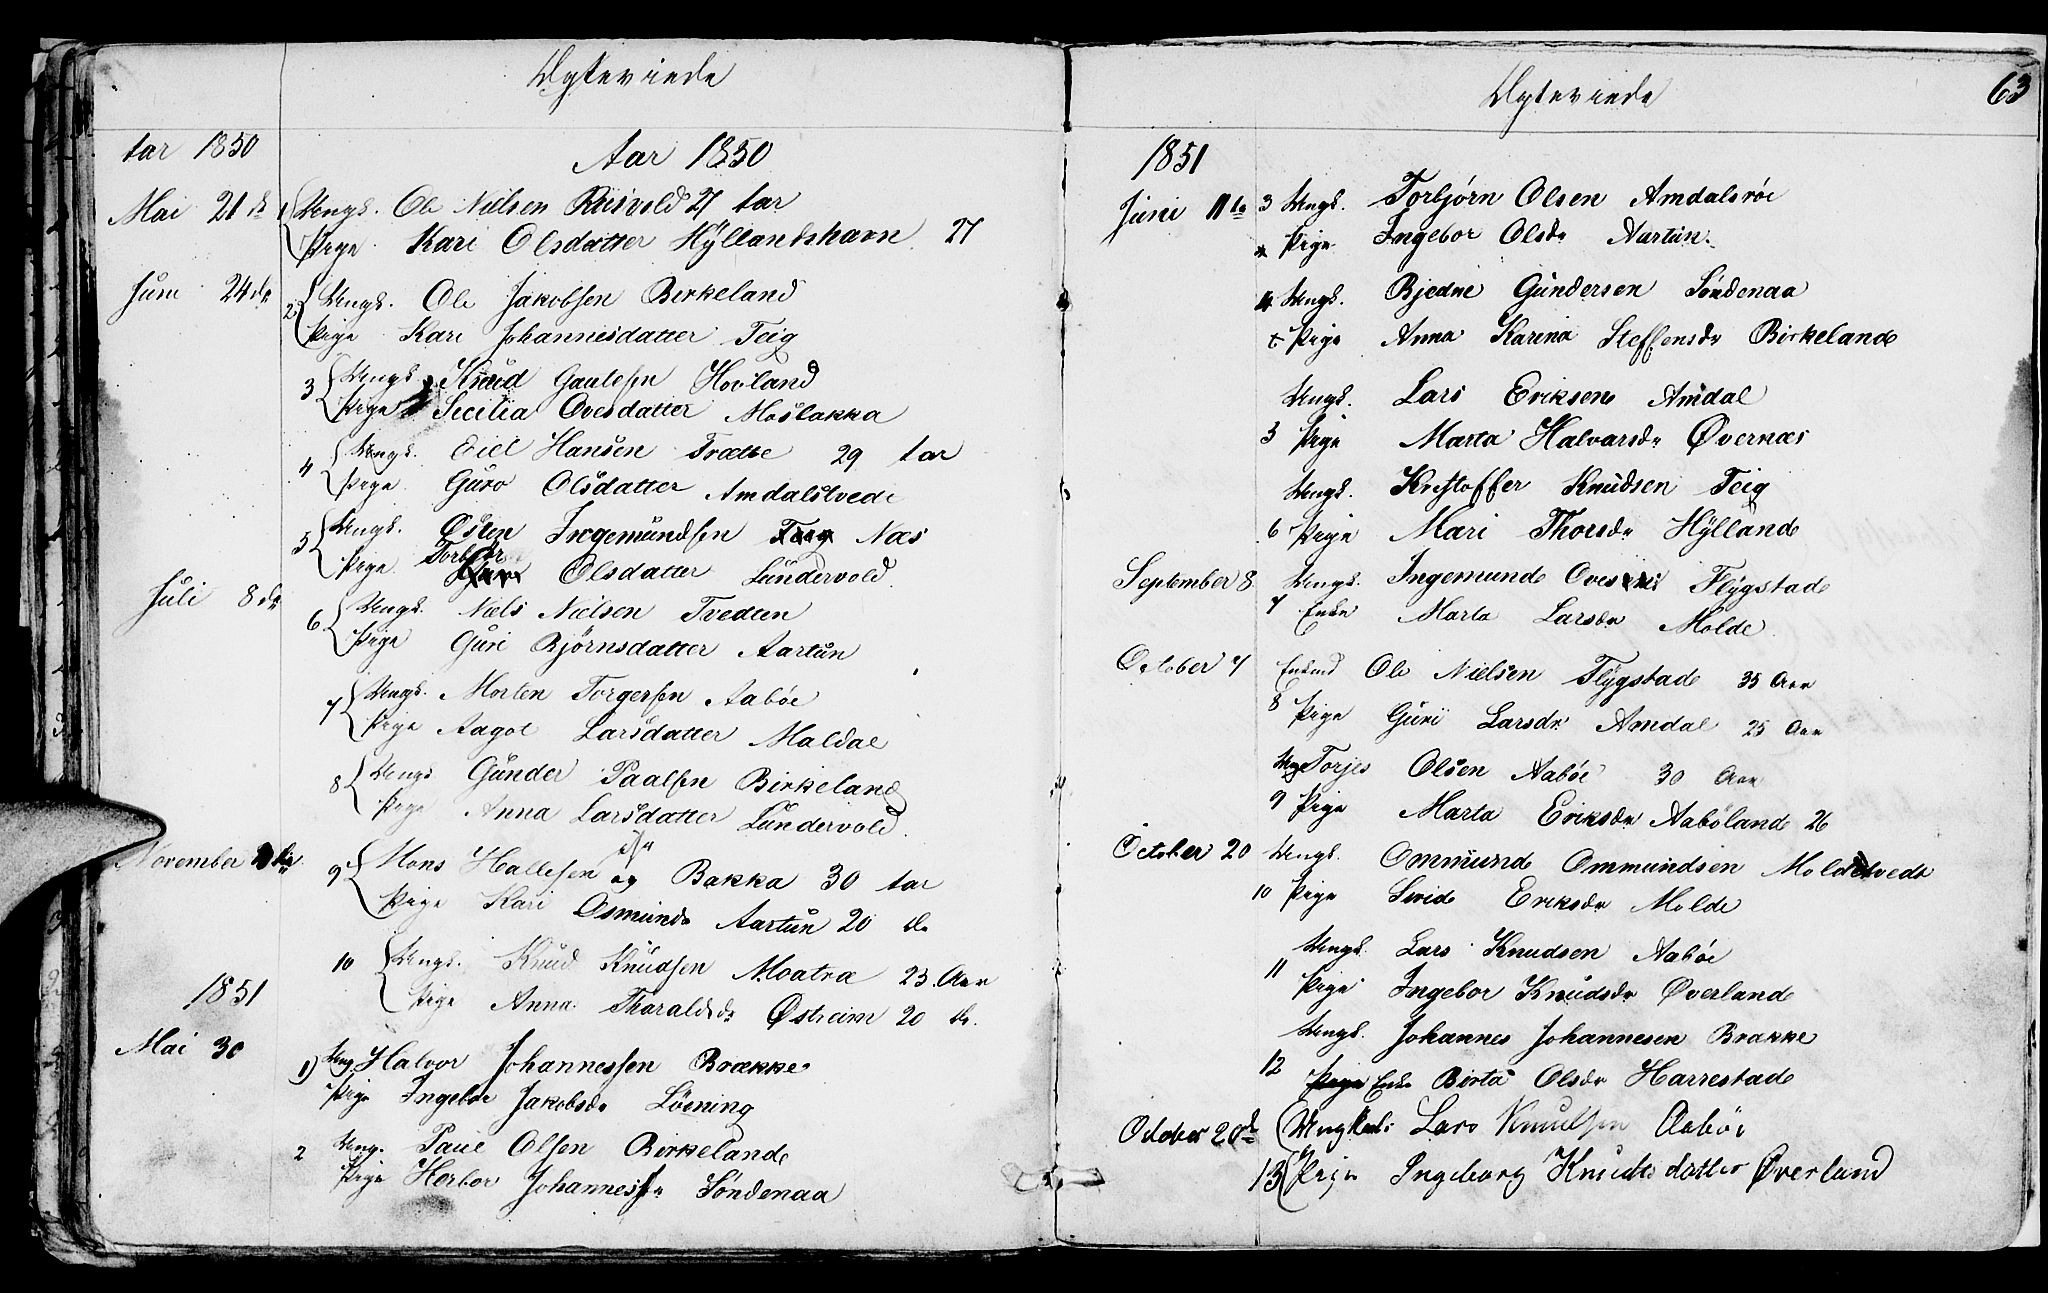 Ægteviede
Aar 1850 Aar 1850
Mai 21de 1 Ungk. Ole Nielsen Riisvold 27 Aar
Pige Kari Olsdatter Hÿllandshavn 27
Juni 24de 2 Ungk. Ole Jakobsen Birkeland
Pige Kari Johannesdatter Teig
3 Ungk. Knud Gautesen Hovland
Pige Secilia Ovesdatter Moslakka
4 Ungk. Eiel Hansen Trætte 29 Aar
Pige Guro Olsdatter Amdalstvede
5 Ungk. Østen Ingemundsen Teig Næs
Pige Torbjør Olsdatter Lundervold
Juli 8de 6 Ungk. Niels Nielsen Tvedten
Pige Guri Bjørnsdatter Aartun
7 Ungk. Morten Torgersen Aabøe
Pige Aagot Larsdatter Maldal
8 Ungk. Gunder Paalsen Birkeland
Pige Anna Larsdatter Lundervold
November 9 Mons Hallesen og Bakka 30 Aar
Pige Kari Osmundsdr Aartun 20 do
10 Ungk. Knud Knudsen Moatræ 23 Aar
Pige Anna Tharaldsdr Østreim 20 do.
1851
Mai 30 1) Ung Halvor Johannessen Brække
Pige Ingebor Jakobsdr Løining
2 Ung. Paul Olsen Birkelande
Pige Herbor Johannesdr Søndenaa
Ægteviede 63
1851
Juni 11te 3 Ungk. Torbjørn Olsen Amdalsrøe
Pige Ingebor Olsdr Aartun.
4 Ungk. Bjedne Gundersen Søndenaa
Pige Anna Karina Steffensdr Birkelande
Ungk. Lars Eriksen Amdal
5 Pige Marta Halvarsdr Øvernæs
Ungk. Kristoffer Knudsen Teig
6 Pige Mari Thorsdr Hÿllande
September 8 Ungk. Ingemunde Ovesen Flÿgstade
7 Enke Marta Larsdr Molde
October 7 Enkmd Ole Nielsen Flÿgstade 35 Aar
8 Pige Guri Larsdr Amdal 25 Aar
Ung Torjes Olsen Aabøe 30 Aar
9 Pige Marta Eriksdr Aabøland 26
October 20 Ungk. Ommunde Ommundsen Moldetvedt
10 Pige Siride Eriksdr Molde
Ungk. Lars Knudsen Aabøe
11 Pige Ingebor Knudsdr Øverlande
Ungk. Johannes Johannesen Brakke
12 Pige Enke Birta Olsdr Harrestade
October 20de Ungkarl: Lars Knudsen Aabøe
13 Pige Ingeborg Knudsdatter Øverland